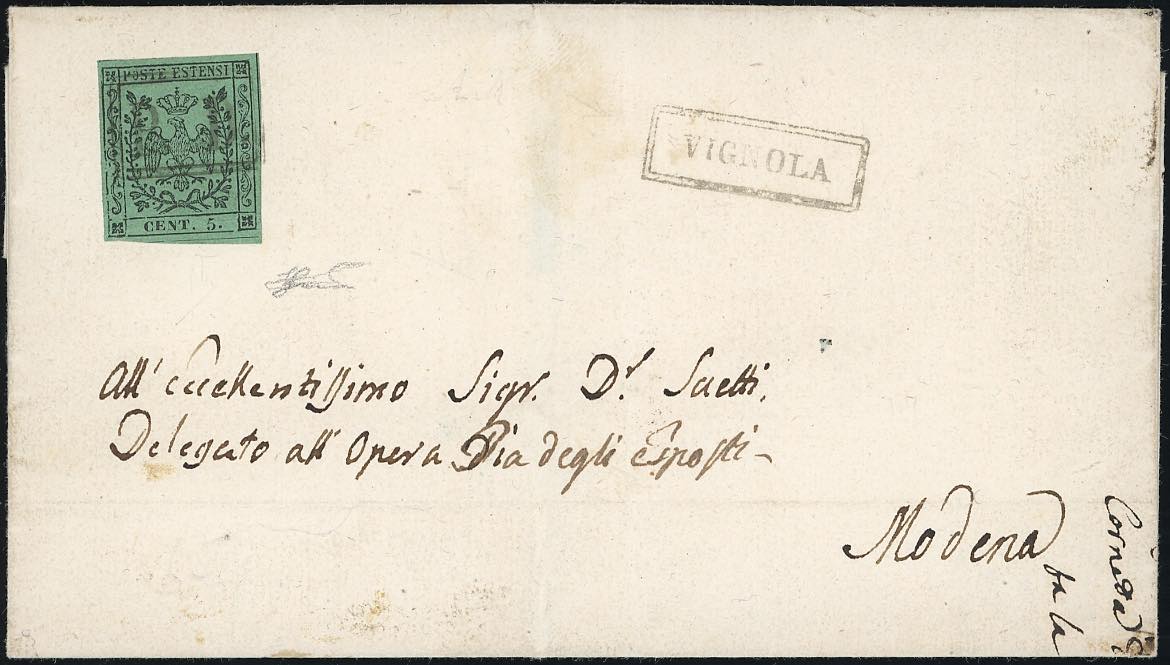 POSTE ESTENSI
CENT. 5.
VIGNOLA
All' eccellentissimo Sigr. Dr. Saetti,
Delegato all' Opera Pia degli Esposti -
Modena